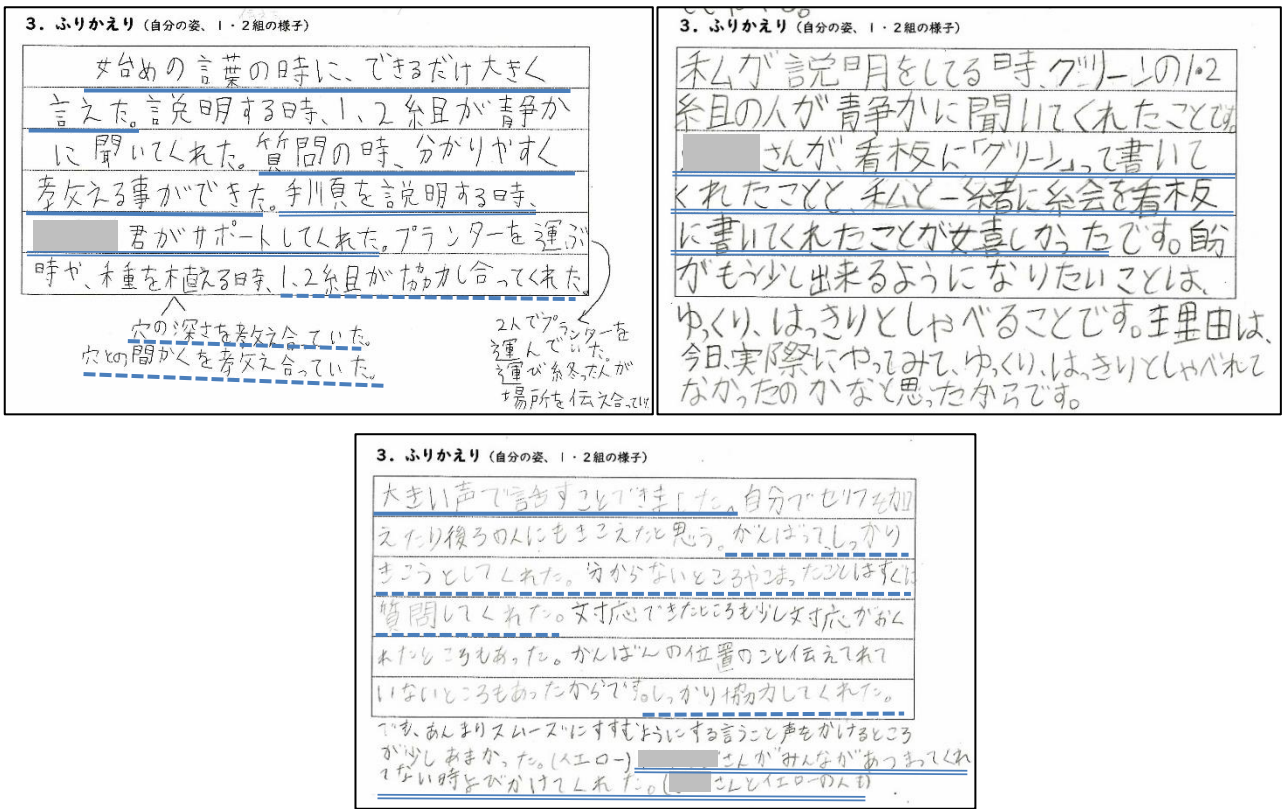 3. ふりかえり (自分の姿、1・2組の様子)
始めの言葉の時に、できるだけ大きく
言えた。説明する時、1、2組が静か
に聞いてくれた。質問の時、分かりやすく
教える事ができた。手順を説明する時、
君がサポートしてくれた。プランターを運ぶ
時や、種を植える時、1、2組が協力し合ってくれた。
穴の深さを教え合っていた。
穴との間かくを教え合っていた。
2人でプランターを
運んでいた。
運び終った人が
場所を伝え合ってい
3. ふりかえり (自分の姿、1・2組の様子)
私が説明をしてる時、グリーンの1・2
組の人が静かに聞いてくれたことです。
さんが、看板に「グリーン」って書いて
くれたことと、私と一緒に絵を看板
に書いてくれたことが嬉しかったです。自分
がもう少し出来るようになりたいことは、
ゆっくり、はっきりとしゃべることです。理由は、
今日、実際にやってみて、ゆっくり、はっきりとしゃべれて
なかったのかなと思ったからです。
3. ふりかえり (自分の姿、1・2組の様子)
大きい声で話すことできました。自分でセリフを加
えたり後ろの人にもきこえたと思う。がんばって、しっかり
きこうとしてくれた。分からないところやこまったことはすぐに
質問してくれた。対応できたところも少し対応がおく
れたところもあった。かんばんの位置のこと伝えてれて
いないところもあったからです。しっかり協力してくれた。
でも、あんまりスムーズにすすむようにする言うこと声をかけるところ
が少しあまかった。(イエロー) さんがみんながあつまってくれ
てない時よびかけてくれた。( さんとイエローの人も)